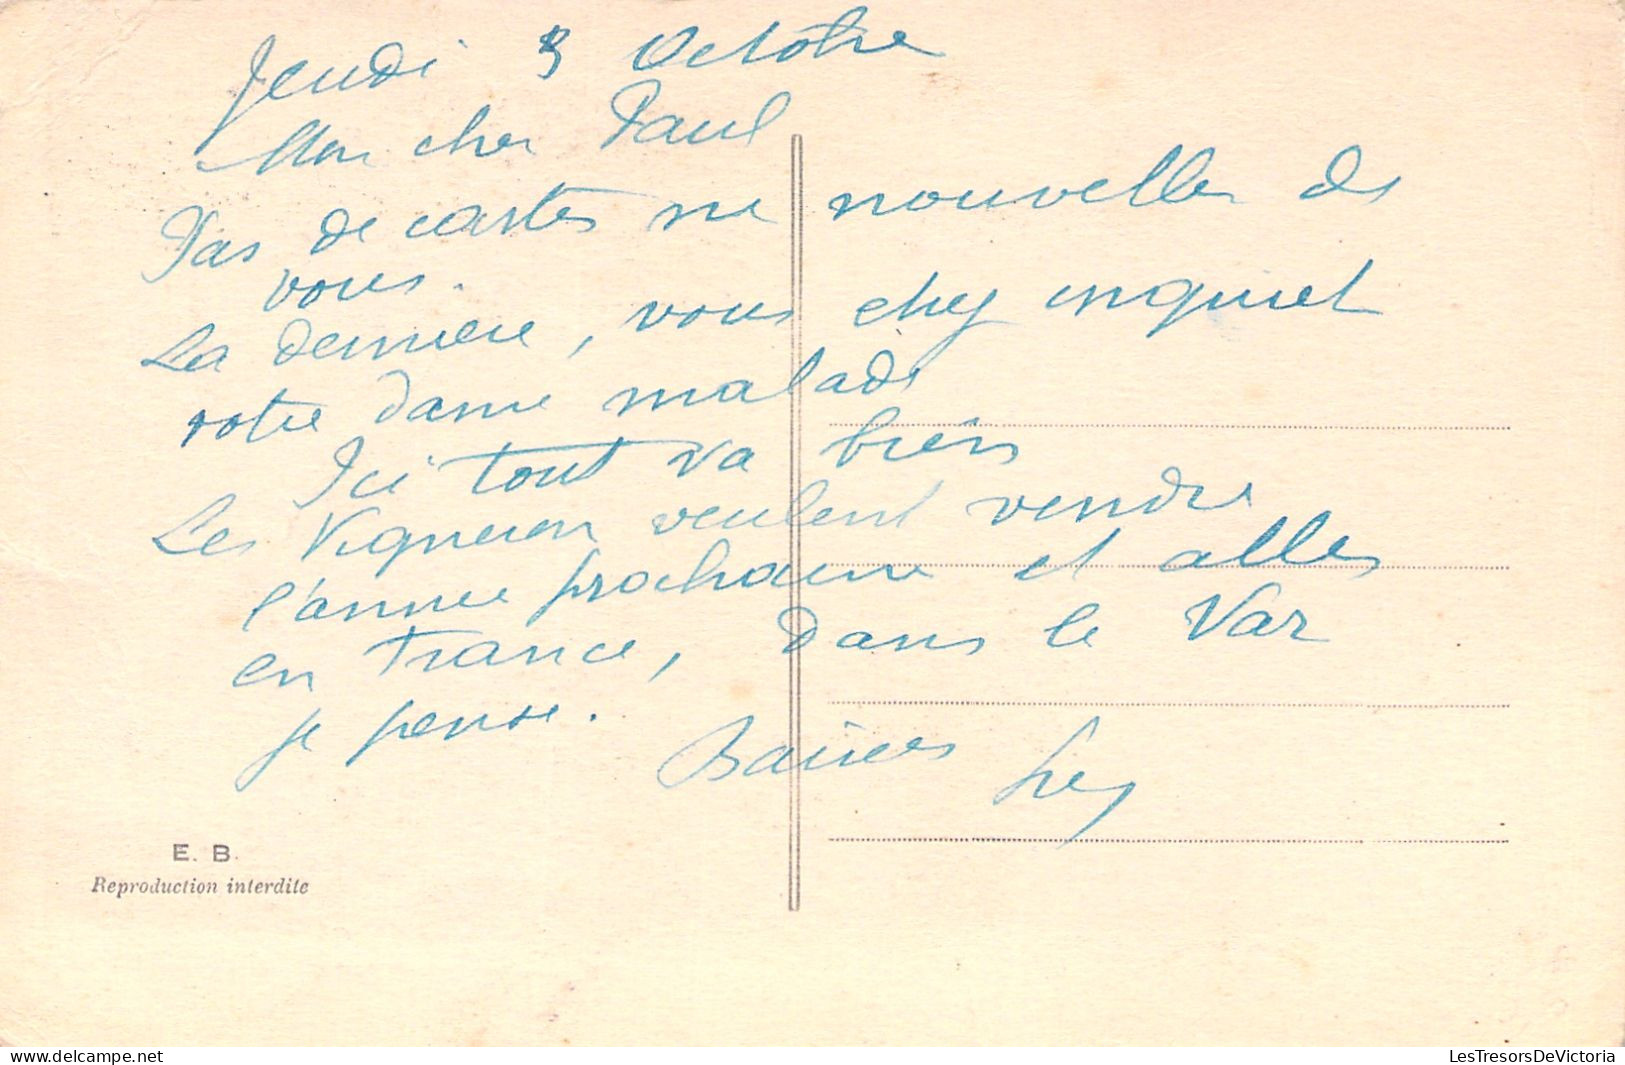 Jeudi 3 Octobre
Mon cher Paul
Pas de cartes ne nouvelles de
vous.
La derniere, vous chey inquiet
votre dame malade
Ici tout va bien
Les Vigneron veulent vendre
l'année prochaine et aller
en France, dans le Var
je pense.
Baisers
E. B.
Reproduction interdite
delcampe.net
LesTresorsDeVictoria